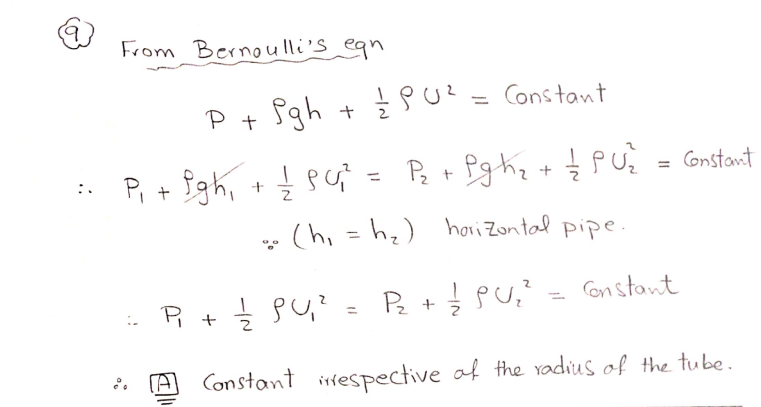 9 From Bernoulli's eqn
P + ρgh + 1/2 ρU² = Constant
∴ P₁ + ρgh₁ + 1/2 ρU₁² = P₂ + ρgh₂ + 1/2 ρU₂² = Constant
∵ (h₁ = h₂) horizontal pipe.
∴ P₁ + 1/2 ρU₁² = P₂ + 1/2 ρU₂² = Constant
∴ A Constant irrespective of the radius of the tube.